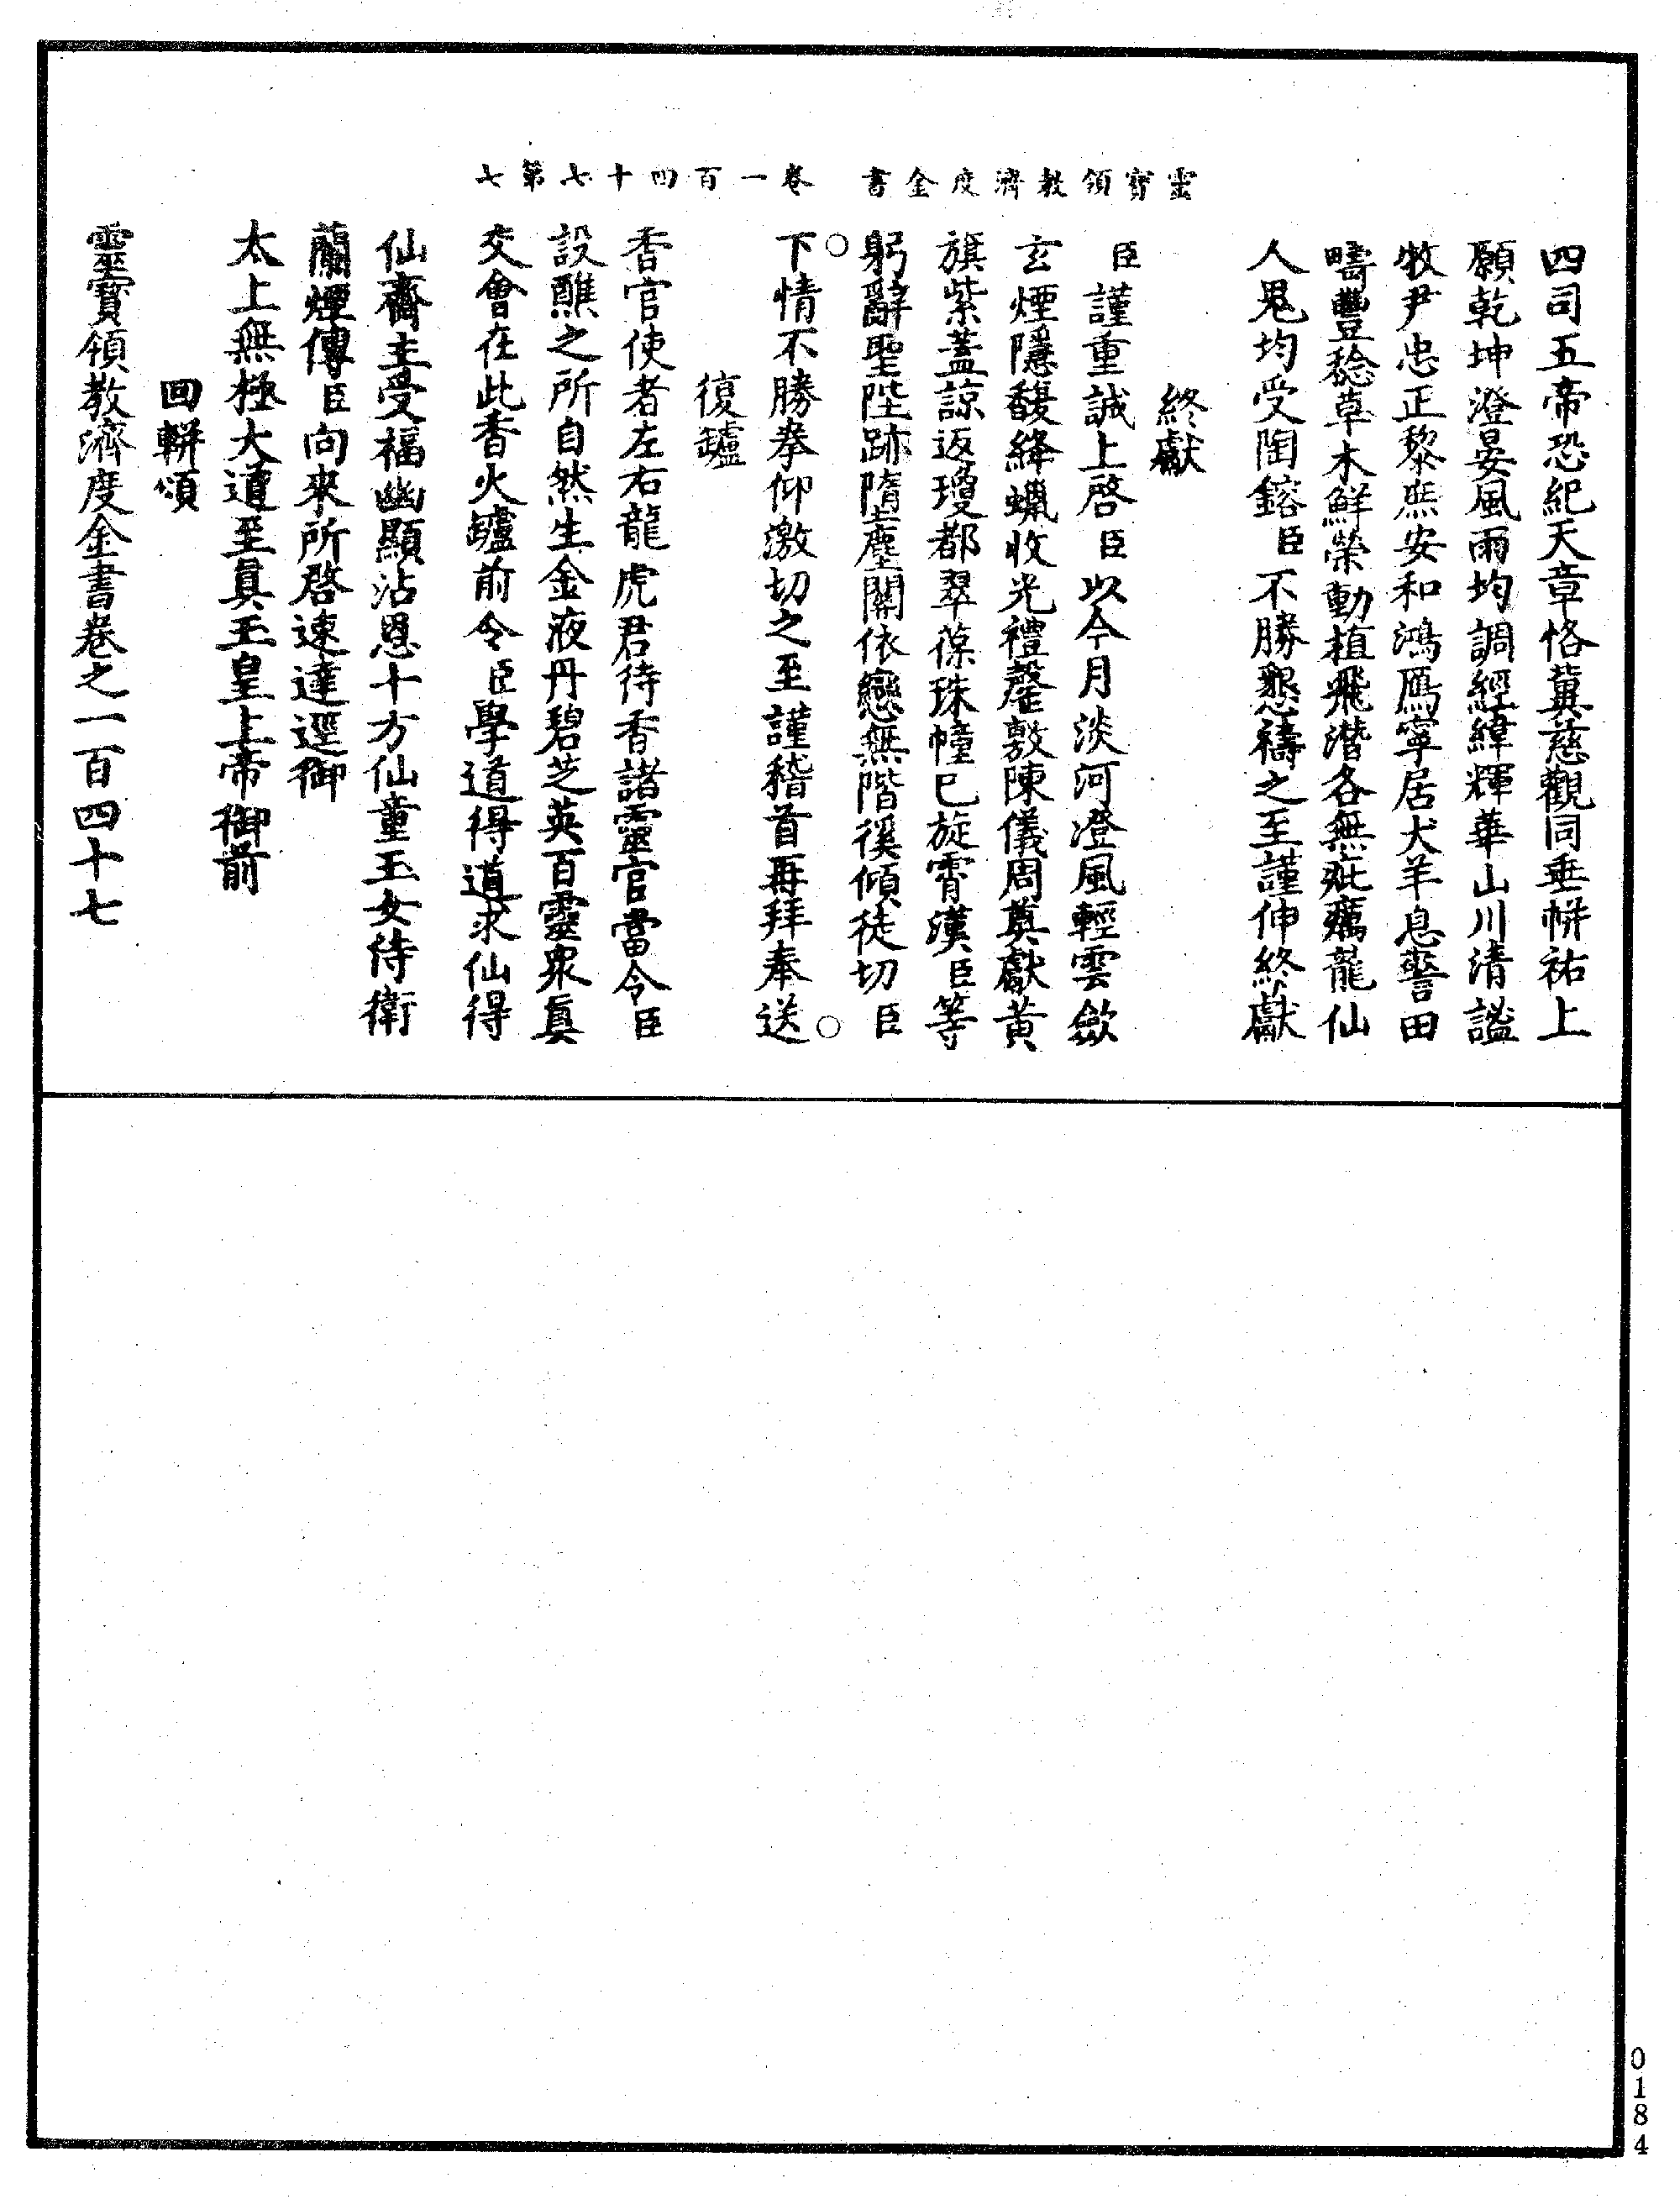 靈寶領教濟度金書　卷一百四十七第七
四司五帝恐紀天章恪冀慈觀同垂帡祐上
願乾坤澄晏風雨均調經緯輝華山川清謐
牧尹忠正黎烝安和鴻鴈寧居犬羊息警田
疇豐稔草木鮮榮動植飛潛各無疵癘龍仙
人鬼均受陶鎔臣不勝懇禱之至謹伸終獻
終獻
臣謹重誠上啓臣以今月淡河澄風輕雲斂
玄煙隱馥絳蠟收光禮罄敷陳儀周奠獻黃
旗紫蓋諒返瓊都翠葆珠幢已旋霄漢臣等
躬辭聖陛跡墮塵關依戀無階徯傾徒切臣
下情不勝拳仰激切之至謹稽首再拜奉送
復鑪
香官使者左右龍虎君侍香諸靈官當令臣
設醮之所自然生金液丹碧芝英百靈眾眞
交會在此香火鑪前令臣學道得道求仙得
仙齋主受福幽顯沾恩十方仙童玉女侍衛
蘭煙傳臣向來所啓速達逕御
太上無極大道至眞玉皇上帝御前
回軿頌
靈寶領教濟度金書卷之一百四十七
0184